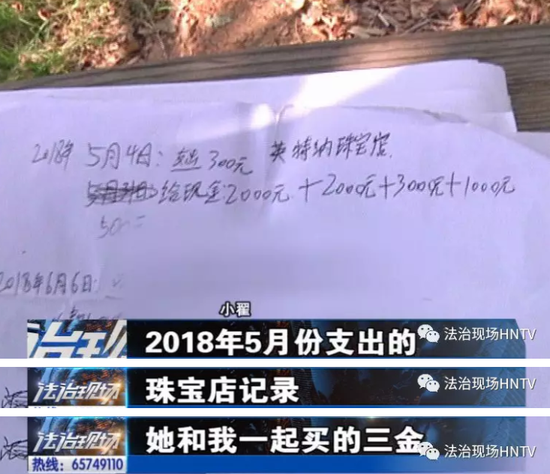 2018年 5月4日: 300元 英特纳珠宝店
给现金2000元+2000元+300元+1000元
50
2018年6月6日:
小翟
法治现场
2018年5月份支出的
法治现场HNTV
法治现场
珠宝店记录
法治现场HNTV
法治现场
她和我一起买的三金
法治现场HNTV
热线: 65749110